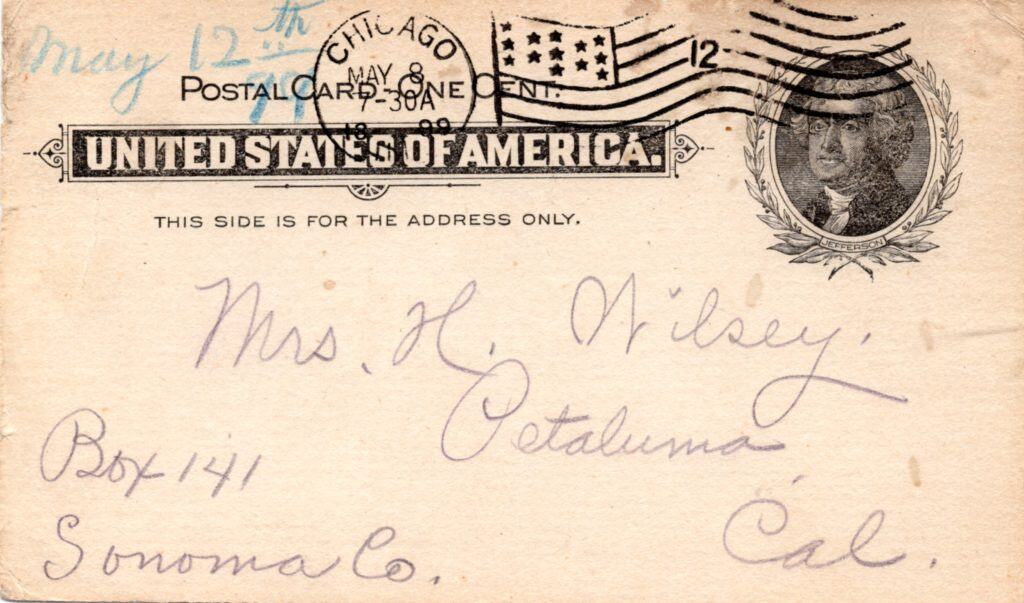 May 12th
99
CHICAGO
MAY 8
7-30A
18 99
12
POSTAL CARD-ONE CENT.
UNITED STATES OF AMERICA.
JEFFERSON
THIS SIDE IS FOR THE ADDRESS ONLY.
Mrs. H. Wilsey.
Petaluma
Box 141
Cal.
Sonoma Co.